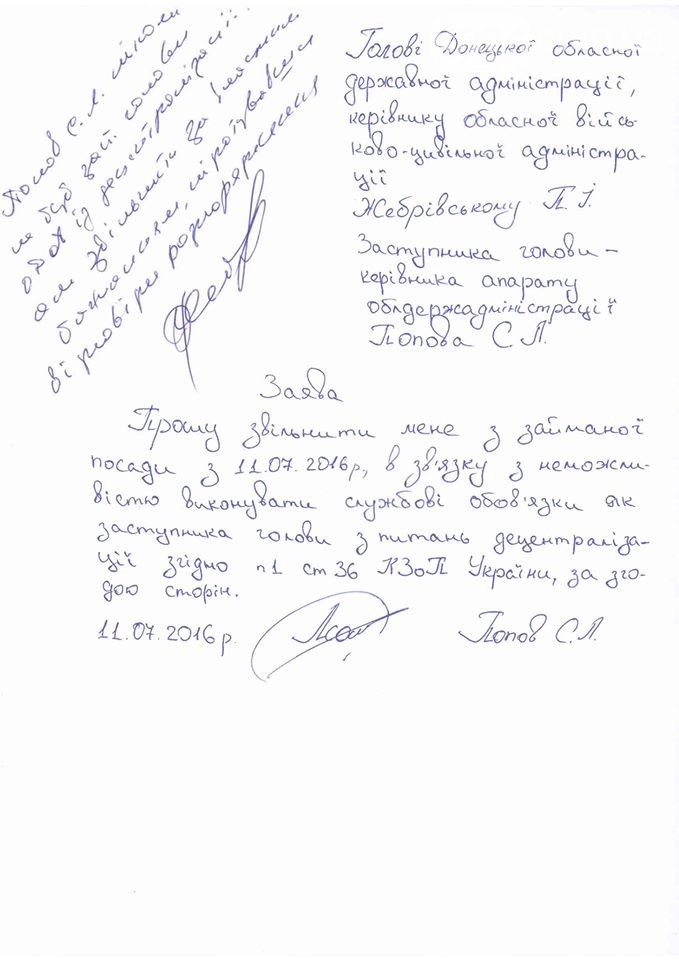 Попов С.Л. ніколи
не був заст. голови
ОДА із децентралізації!
але звільнити за власним
бажанням, підготувавши
відповідні розпорядження
Голові Донецької обласної
державної адміністрації,
керівнику обласної війсь-
ково-цивільної адміністра-
ції
Жебрівському П.І.
Заступника голови –
керівника апарату
облдержадміністрації
Попова С.Л.
Заява
Прошу звільнити мене з займаної
посади з 11.07.2016р, в зв'язку з неможли-
вістю виконувати службові обов'язки як
заступника голови з питань децентраліза-
ції згідно п1 ст36 КЗоП України, за зго-
дою сторін.
11.07.2016р. Попов С.Л.